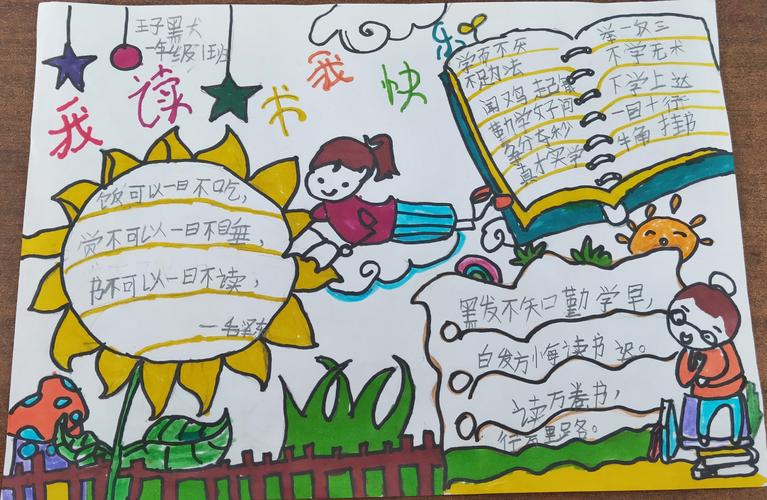 王子墨犬
一年级1班
我读书我快乐
饭可以一日不吃，
觉不可以一日不睡，
书不可以一日不读，
—毛泽东
学而不厌
不足为法
闻鸡起舞
勤学好问
争分夺秒
真才实学
举一反三
不学无术
下学上达
一目十行
牛角挂书
黑发不知勤学早，
白发方悔读书迟。
读万卷书，
行万里路。